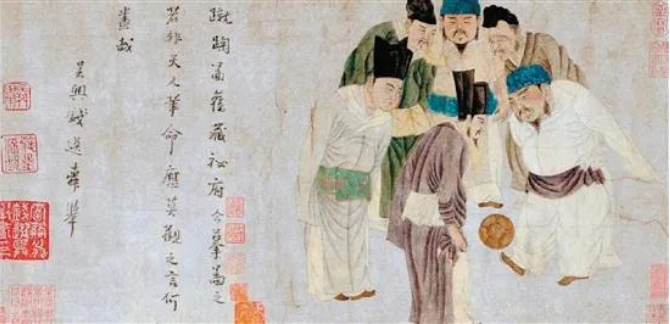 蹴踘啚舊藏秘府今摹啚之
若非天人革命應莫觀之言何
畫哉
吳興錢選舜舉